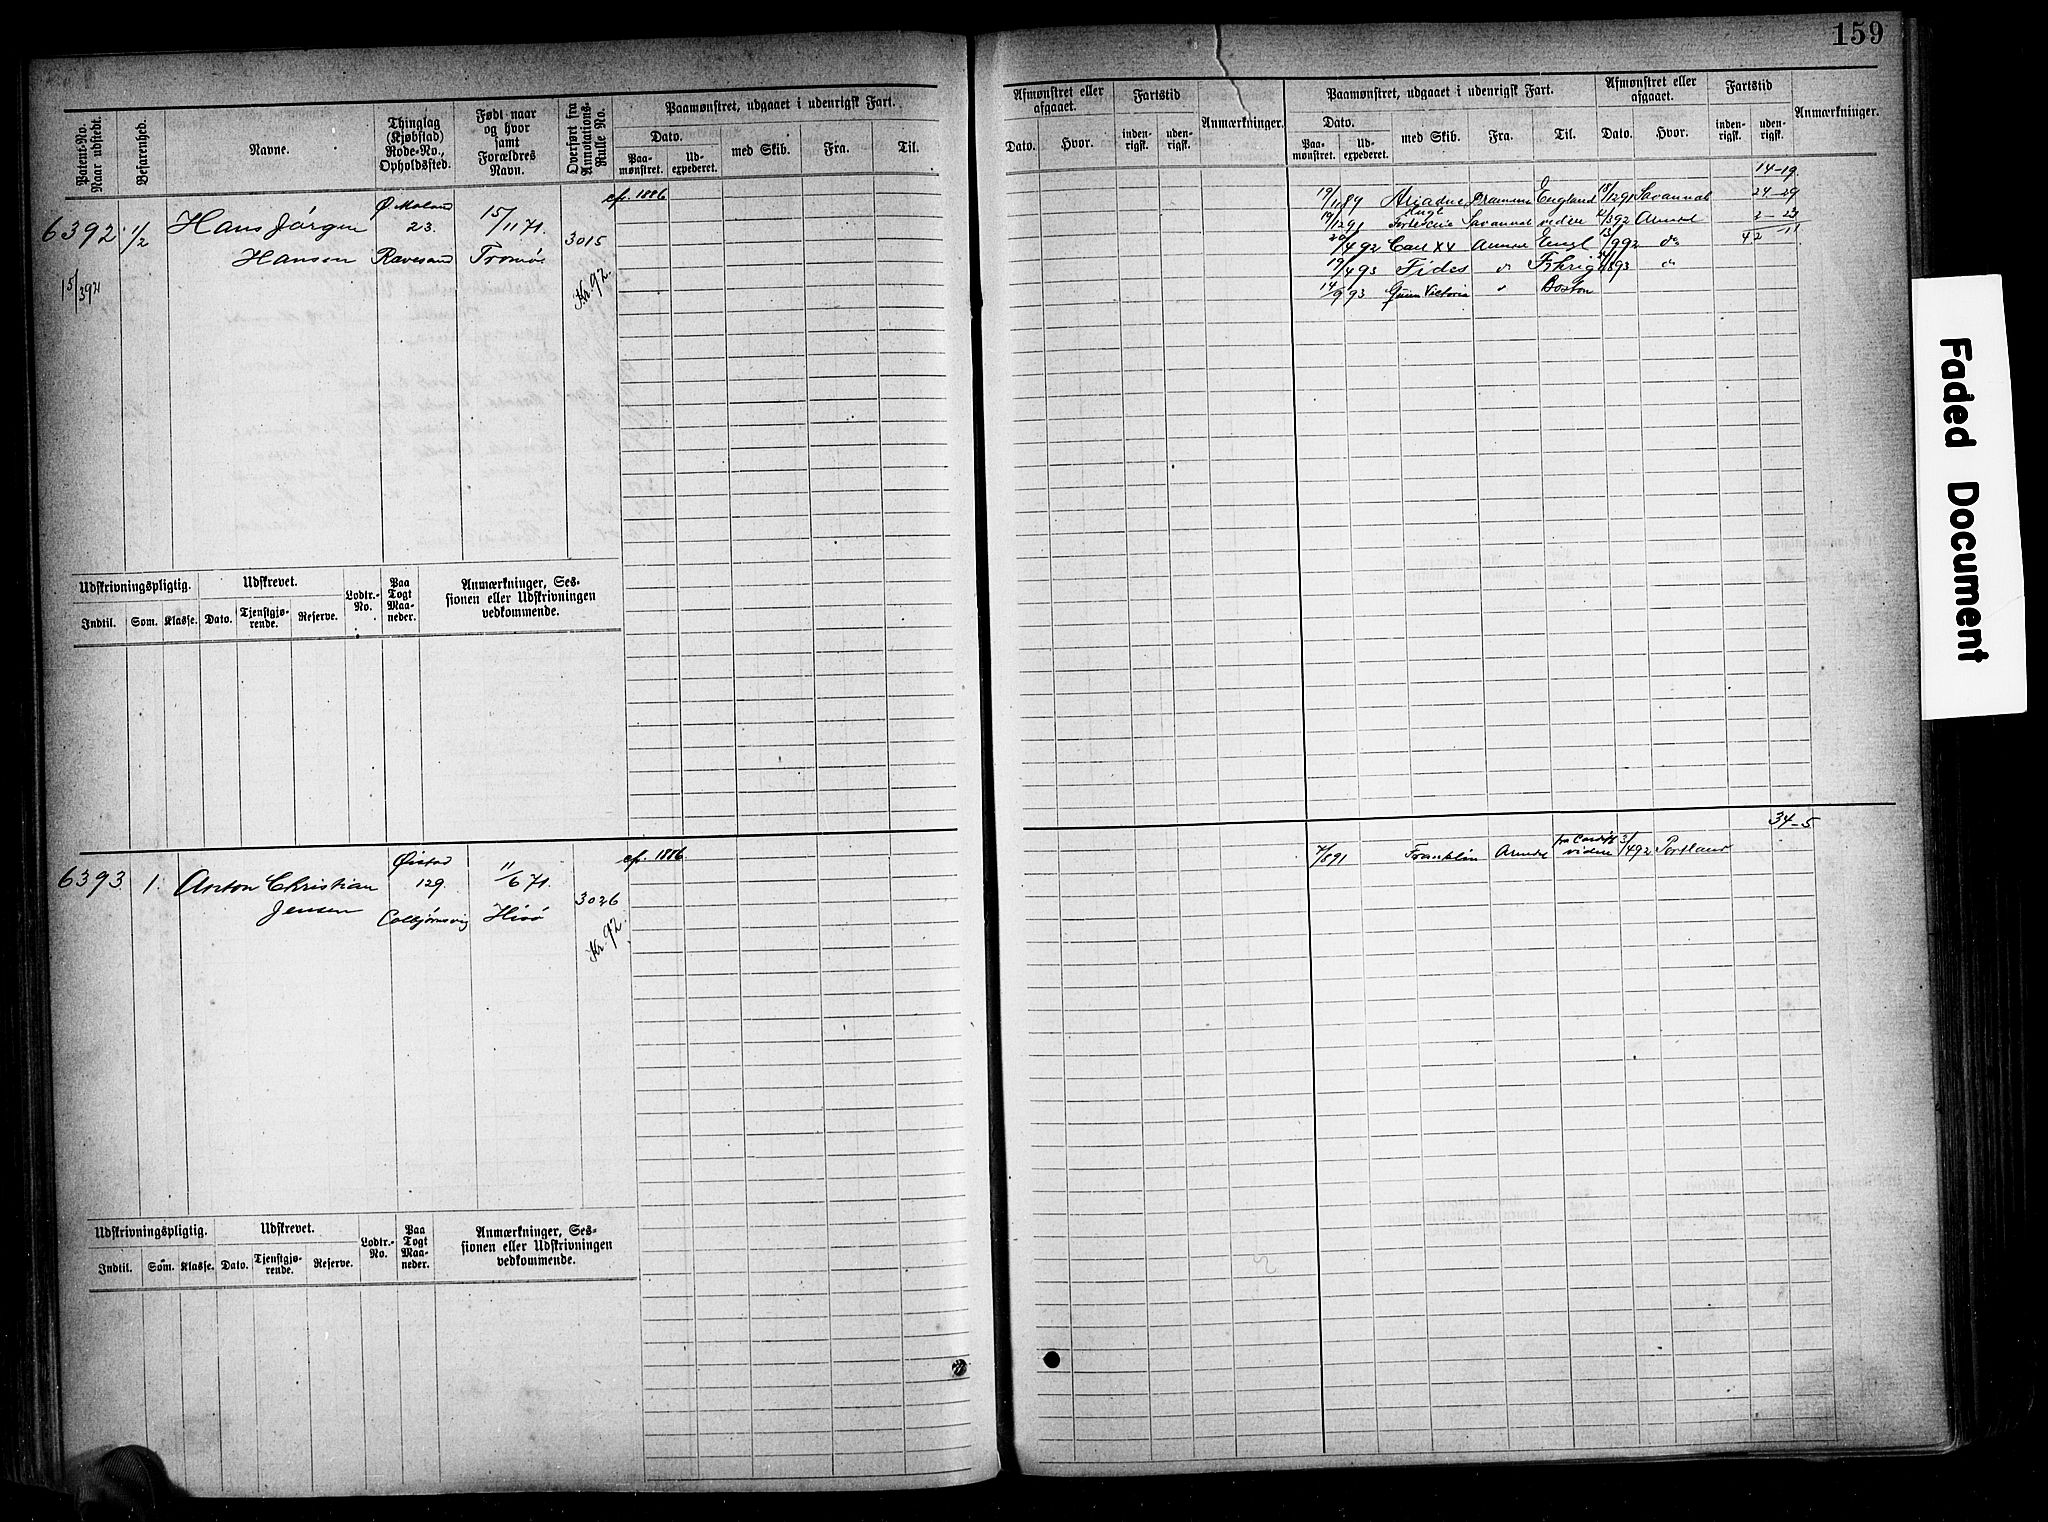 159
Patent-No. Naar udstedt.
Befarenhed.
Navne.
Thinglag (Kjøbstad) Rode-No., Opholdssted.
Født naar og hvor samt Forældres Navn.
Overført fra Annotations-Rulle No.
Paamønstret, udgaaet i udenrigsk Fart.
Dato.
Paa-mønstret.
Ud-expederet.
med Skib.
Fra.
Til.
Afmønstret eller afgaaet.
Dato.
Hvor.
Fartstid
inden-rigsk.
uden-rigsk.
Anmærkninger.
Paamønstret, udgaaet i udenrigsk Fart.
Dato.
Paa-mønstret.
Ud-expederet.
med Skib.
Fra.
Til.
Afmønstret eller afgaaet.
Dato.
Hvor.
Fartstid
inden-rigsk.
uden-rigsk.
Anmærkninger.
6392 1/2 Hans Jørgen Ø Moland 15/11 71. 3015 cfr. 1886
Hansen 23. Ravesand Tromø
15/3 92 Kr. 92.
14-19
19/1 89 Ariadne Drammen England 18/12 91 Savannah 24-29
19/12 91 Savannah videre 4/3 92 Arendal
20/4 92 Carl XV Arendal Engl 13/9 92 do 42 11
19/4 93 Fides do
14/9 93 Victoria Boston
Udskrivningspligtig.
Udskrevet.
Lodtr.-No.
Paa Togt Maa-neder.
Anmærkninger, Ses-sionen eller Udskrivningen vedkommende.
Indtil. Som. Klasse. Dato. Tjenstgjø-rende. Reserve.
6393 1. Anton Christian Øiestad 11/6 71. 3026 cfr. 1886
Jensen 129. Colbjørnsvig Hisø
Kr. 92.
34-5
7/8 91 Franklin Arendal fra Cardiff videre 3/4 92 Portland
Udskrivningspligtig.
Udskrevet.
Lodtr.-No.
Paa Togt Maa-neder.
Anmærkninger, Ses-sionen eller Udskrivningen vedkommende.
Indtil. Som. Klasse. Dato. Tjenstgjø-rende. Reserve.
Faded Document